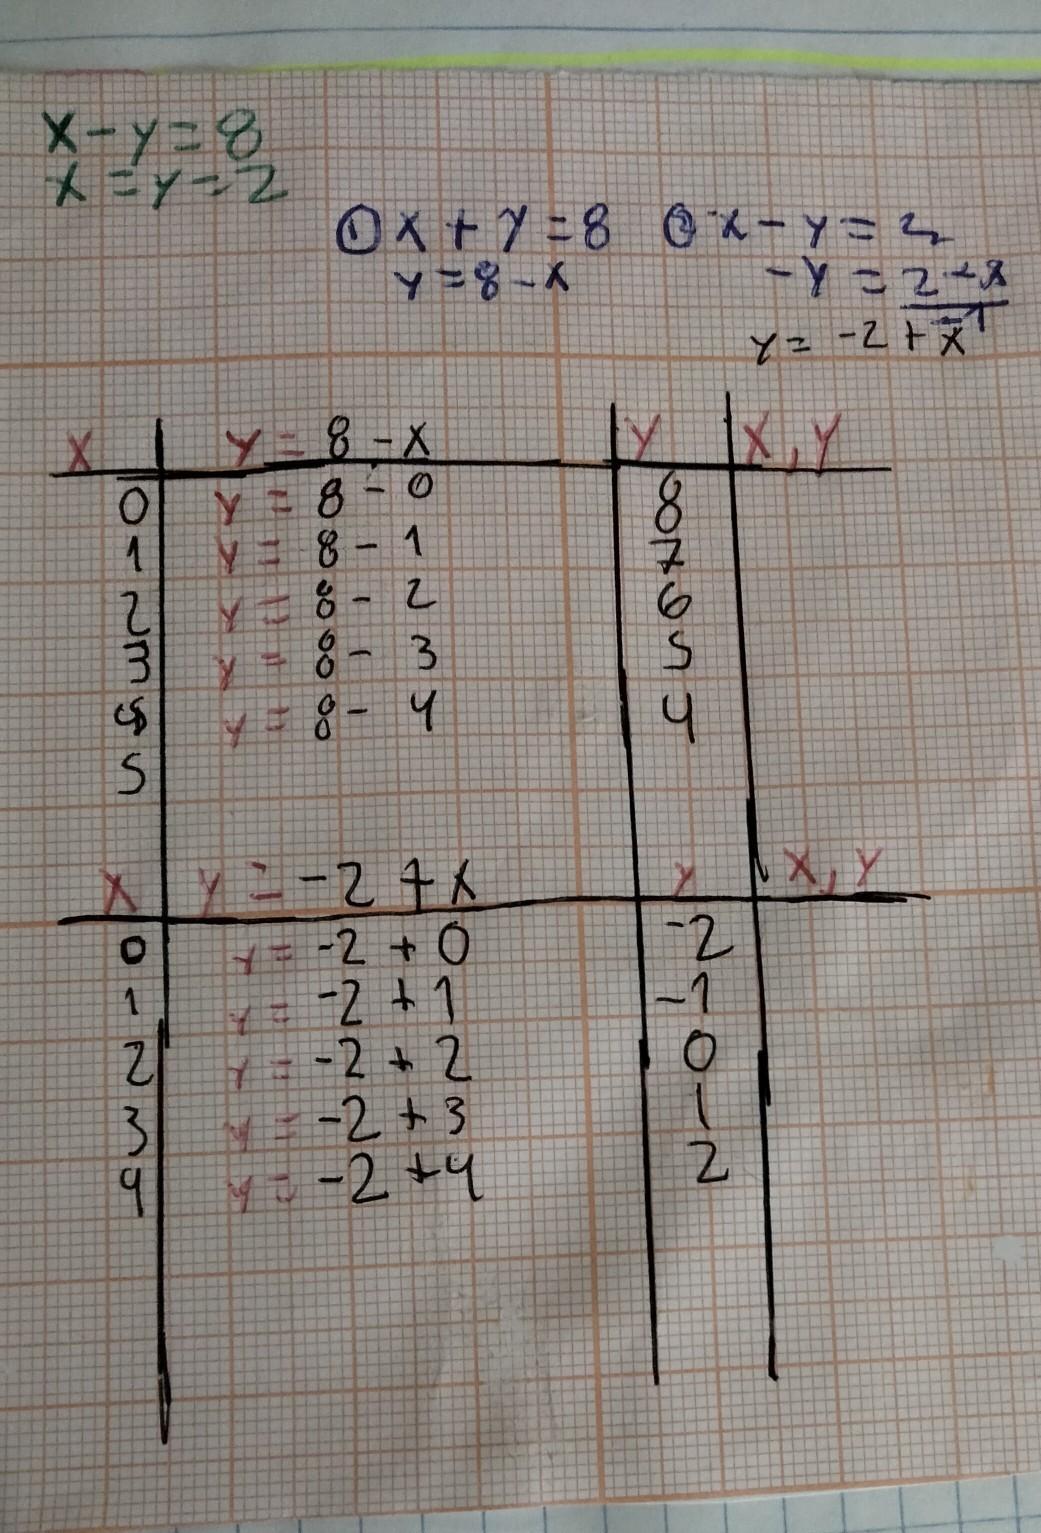 x - y = 8
x = y = 2
① x + y = 8 ② x - y = 2
y = 8 - x - y = 2 - x
-1
y = -2 + x
x y = 8 - x y x, y
0 y = 8 - 0 8
1 y = 8 - 1 7
2 y = 8 - 2 6
3 y = 8 - 3 5
4 y = 8 - 4 4
5
x y = -2 + x y x, y
0 y = -2 + 0 -2
1 y = -2 + 1 -1
2 y = -2 + 2 0
3 y = -2 + 3 1
4 y = -2 + 4 2